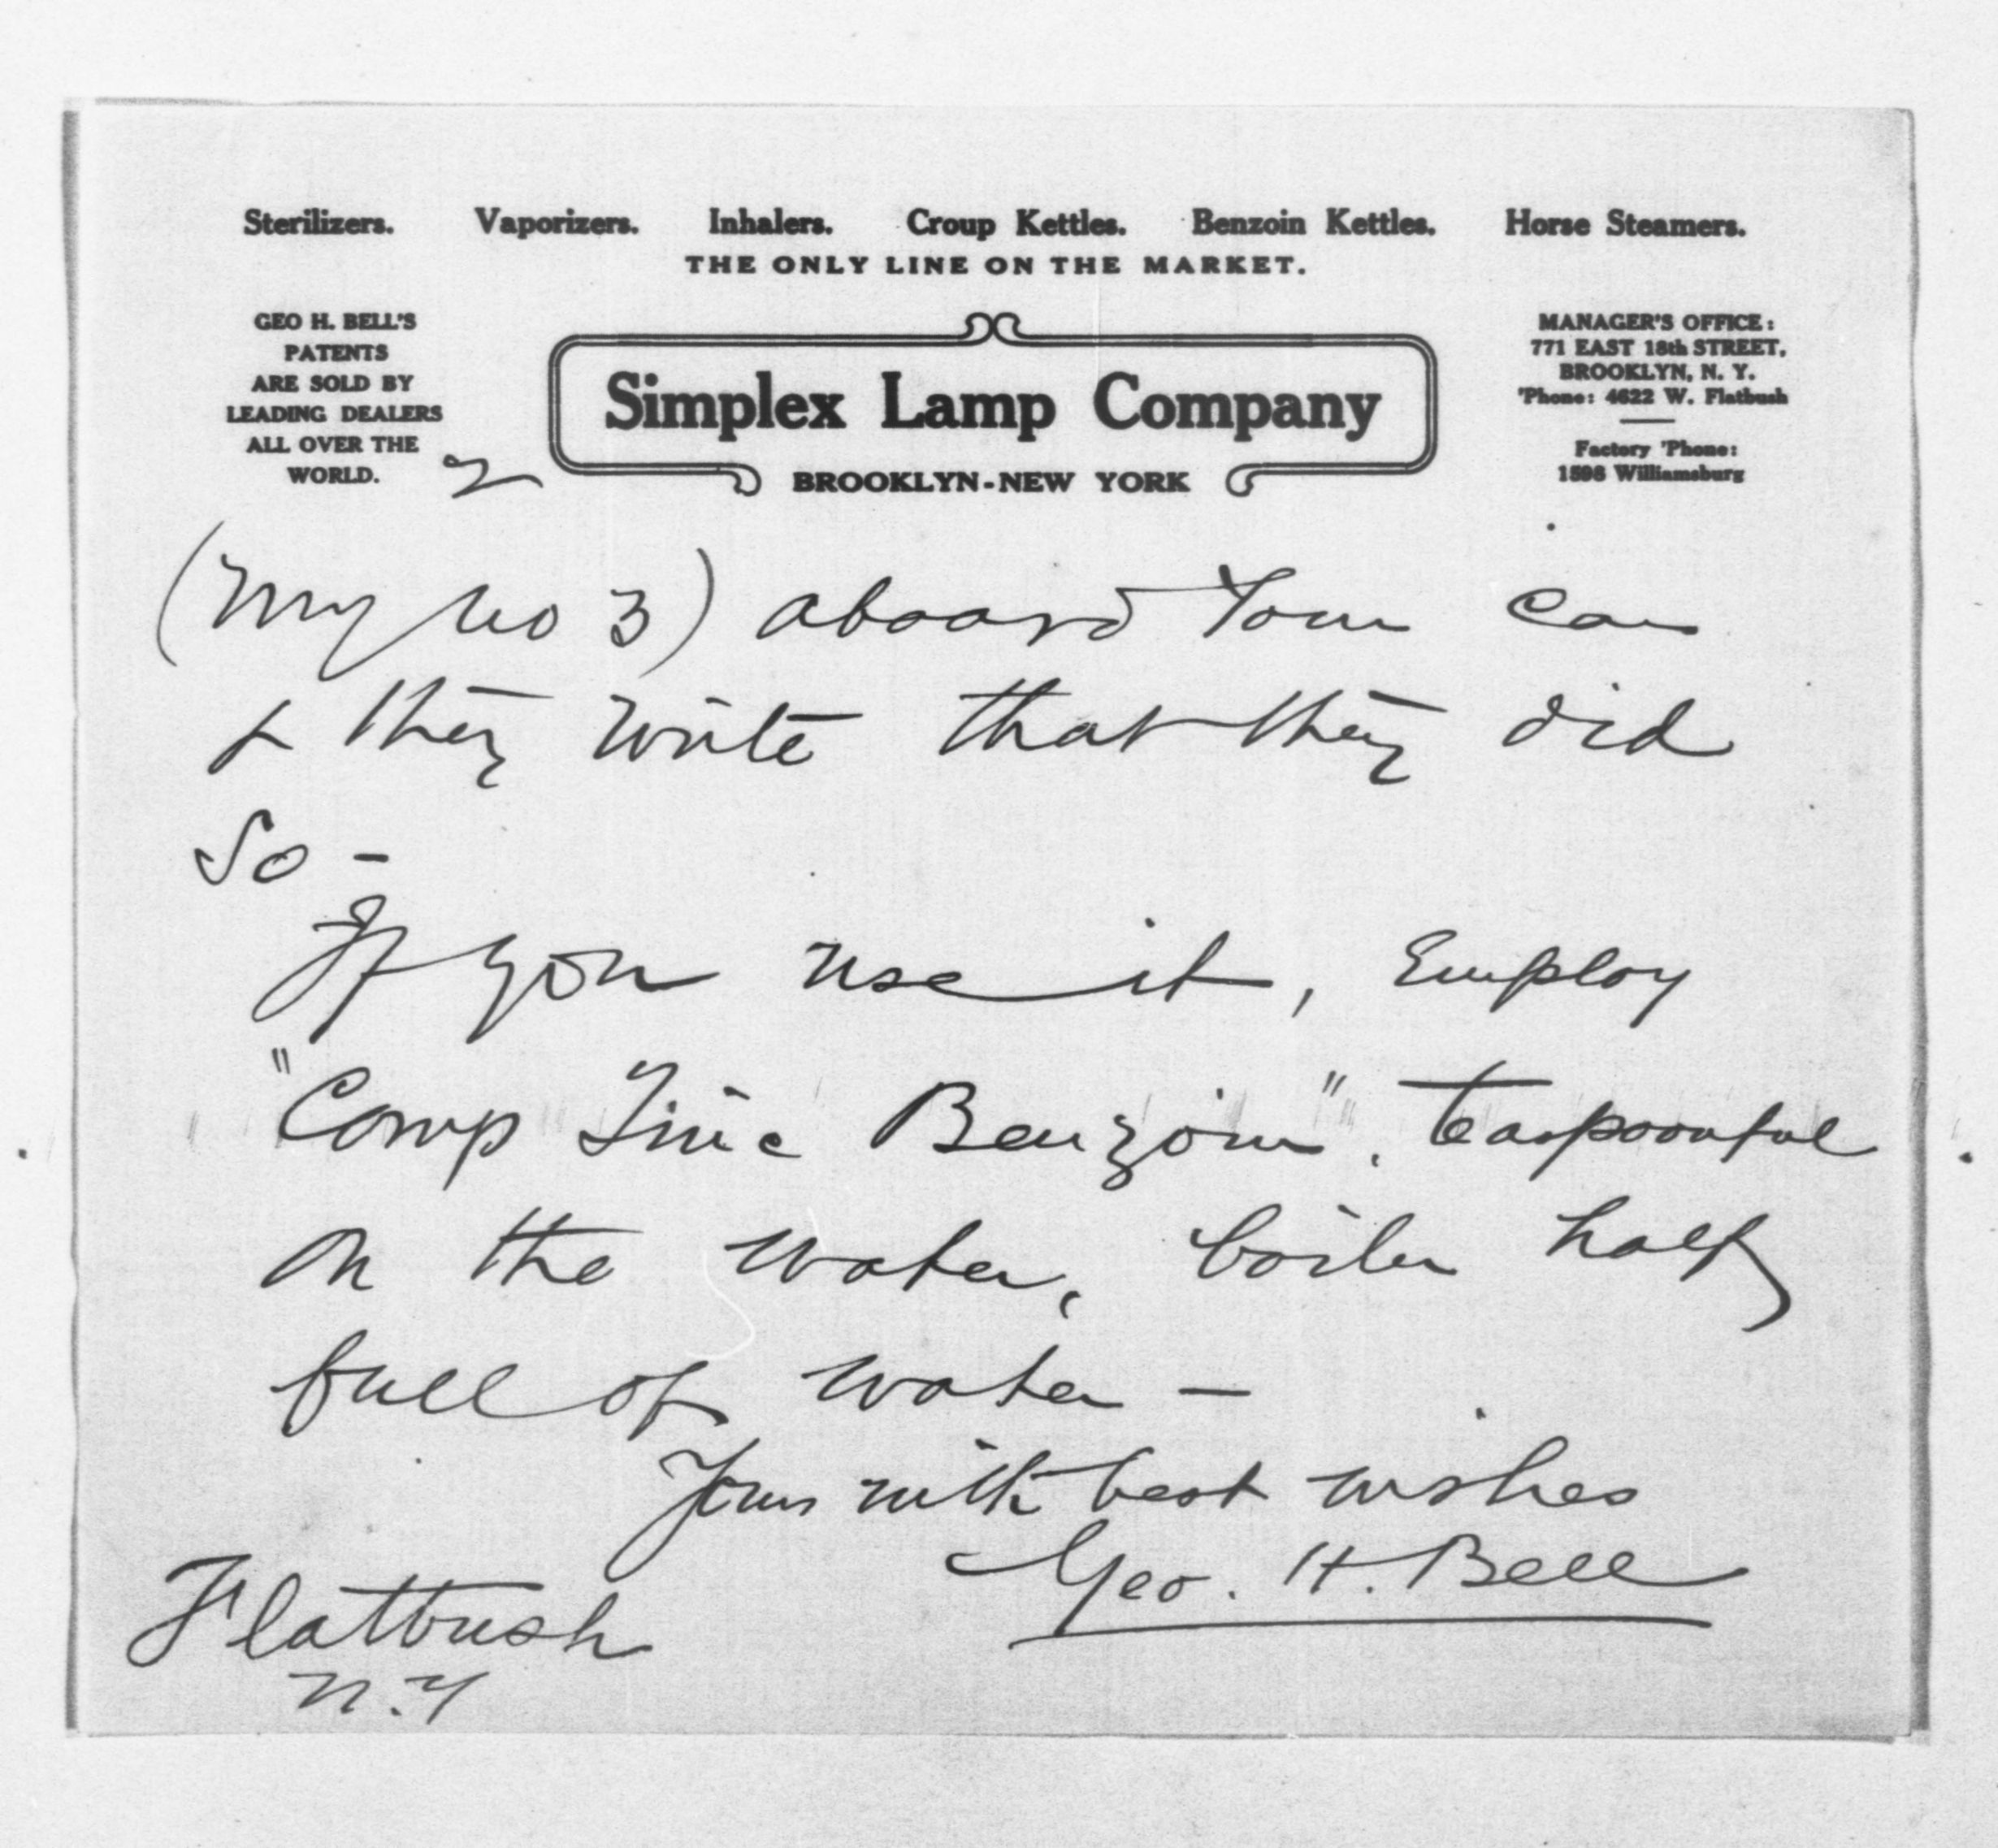 Sterilizers. Vaporizers. Inhalers. Croup Kettles. Benzoin Kettles. Horse Steamers.
THE ONLY LINE ON THE MARKET.
GEO H. BELL'S
PATENTS
ARE SOLD BY
LEADING DEALERS
ALL OVER THE
WORLD.
Simplex Lamp Company
BROOKLYN-NEW YORK
MANAGER'S OFFICE:
771 EAST 18th STREET,
BROOKLYN, N. Y.
'Phone: 4622 W. Flatbush
Factory 'Phone:
1598 Williamsburg
2
(My No 3) aboard Your Car
& they write that they did
So -
If you use it, Employ
"Comp Tinc Benzoin". teaspoonful
on the water, boiler half
full of water -
Yours with best wishes
Geo. H. Bell
Flatbush
N.Y